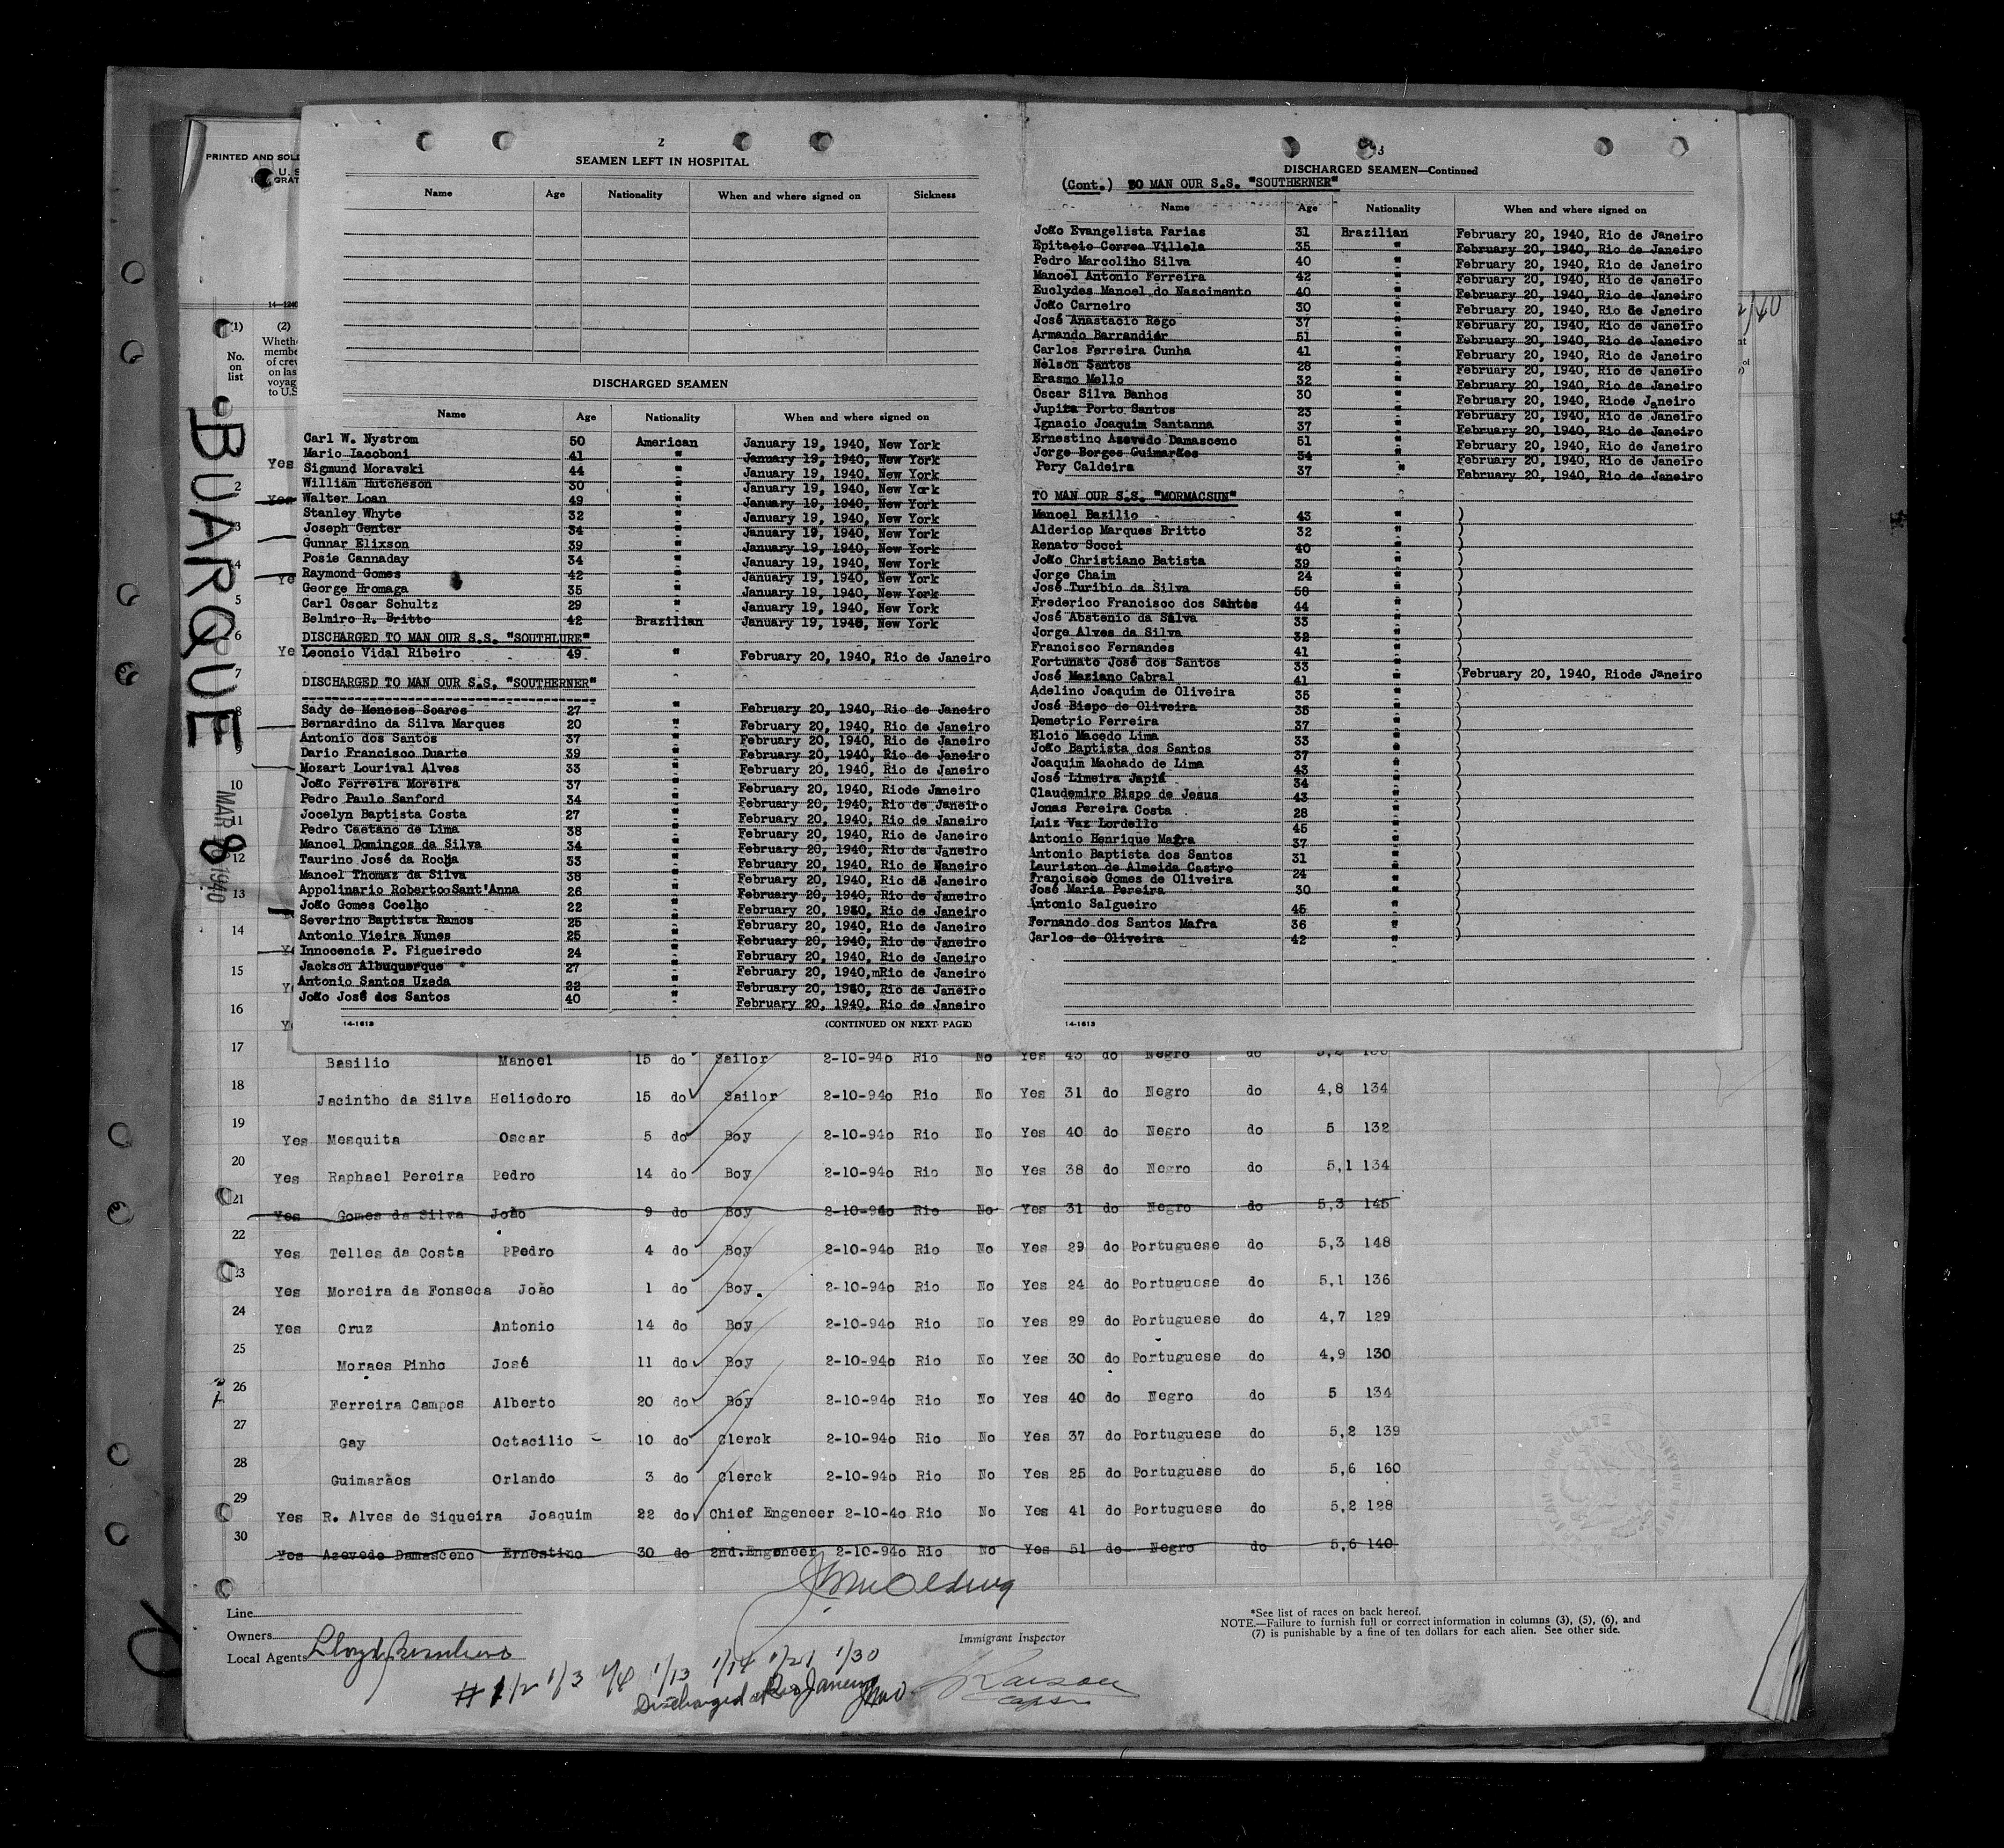 PRINTED AND SOLD
U. S.
GRAT
14—1240
(1)
No.
on
list
(2)
Wheth
membe
of crew
on las
voyag
to U.S
BUARQUE
MAR 8 1940
2
SEAMEN LEFT IN HOSPITAL
Name Age Nationality When and where signed on Sickness
DISCHARGED SEAMEN
Name Age Nationality When and where signed on
Carl W. Nystrom 50 American January 19, 1940, New York
Mario Iacoboni 41 " January 19, 1940, New York
Sigmund Moravski 44 " January 19, 1940, New York
William Hutcheson 30 " January 19, 1940, New York
Walter Loan 49 " January 19, 1940, New York
Stanley Whyte 32 " January 19, 1940, New York
Joseph Genter 34 " January 19, 1940, New York
Gunnar Elixson 39 " January 19, 1940, New York
Posie Cannaday 34 " January 19, 1940, New York
Raymond Gomes 42 " January 19, 1940, New York
George Hromaga 35 " January 19, 1940, New York
Carl Oscar Schultz 29 " January 19, 1940, New York
Belmiro R. Britto 42 Brazilian January 19, 1940, New York
DISCHARGED TO MAN OUR S.S. "SOUTHLURE"
Leoncio Vidal Ribeiro 49 " February 20, 1940, Rio de Janeiro
DISCHARGED TO MAN OUR S.S. "SOUTHERNER"
Sady de Menezes Soares 27 " February 20, 1940, Rio de Janeiro
Bernardino da Silva Marques 20 " February 20, 1940, Rio de Janeiro
Antonio dos Santos 37 " February 20, 1940, Rio de Janeiro
Dario Francisco Duarte 39 " February 20, 1940, Rio de Janeiro
Mozart Lourival Alves 33 " February 20, 1940, Rio de Janeiro
João Ferreira Moreira 37 " February 20, 1940, Riode Janeiro
Pedro Paulo Sanford 34 " February 20, 1940, Rio de Janeiro
Jocelyn Baptista Costa 27 " February 20, 1940, Rio de Janeiro
Pedro Caetano de Lima 38 " February 20, 1940, Rio de Janeiro
Manoel Domingos da Silva 34 " February 20, 1940, Rio de Janeiro
Taurino José da Rocha 33 " February 20, 1940, Rio de Naneiro
Manoel Thomaz da Silva 38 " February 20, 1940, Rio de Janeiro
Appolinario RobertooSant'Anna 26 " February 20, 1940, Rio de Janeiro
João Gomes Coelho 22 " February 20, 1940, Rio de Janeiro
Severino Baptista Ramos 25 " February 20, 1940, Rio de Janeiro
Antonio Vieira Nunes 25 " February 20, 1940, Rio de Janeiro
Innocencia P. Figueiredo 24 " February 20, 1940, Rio de Janeiro
Jackson Albuquerque 27 " February 20, 1940,mRio de Janeiro
Antonio Santos Uzeda 22 " February 20, 1940, Rio de Janeiro
João José dos Santos 40 " February 20, 1940, Rio de Janeiro
14-1613 (CONTINUED ON NEXT PAGE)
3
DISCHARGED SEAMEN—Continued
(Cont.) TO MAN OUR S.S. "SOUTHERNER"
Name Age Nationality When and where signed on
João Evangelista Farias 31 Brazilian February 20, 1940, Rio de Janeiro
Epitacio Correa Villela 35 " February 20, 1940, Rio de Janeiro
Pedro Marcolino Silva 40 " February 20, 1940, Rio de Janeiro
Manoel Antonio Ferreira 42 " February 20, 1940, Rio de Janeiro
Euclydes Manoel do Nascimento 40 " February 20, 1940, Rio de Janeiro
João Carneiro 30 " February 20, 1940, Rio de Janeiro
José Anastacio Rego 37 " February 20, 1940, Rio de Janeiro
Armando Barrandiér 51 " February 20, 1940, Rio de Janeiro
Carlos Ferreira Cunha 41 " February 20, 1940, Rio de Janeiro
Nelson Santos 28 " February 20, 1940, Rio de Janeiro
Erasmo Mello 32 " February 20, 1940, Rio de Janeiro
Oscar Silva Banhos 30 " February 20, 1940, Riode Janeiro
Jupita Porto Santos 23 " February 20, 1940, Rio de Janeiro
Ignacio Joaquim Santanna 37 " February 20, 1940, Rio de Janeiro
Ernestino Azevedo Damasceno 51 " February 20, 1940, Rio de Janeiro
Jorge Borges Guimarães 34 " February 20, 1940, Rio de Janeiro
Pery Caldeira 37 " February 20, 1940, Rio de Janeiro
TO MAN OUR S.S. "MORMACSUN"
Manoel Bazilio 43 " )
Alderico Marques Britto 32 " )
Renato Socci 40 " )
João Christiano Batista 39 " )
Jorge Chaim 24 " )
José Turibio da Silva 58 " )
Frederico Francisco dos Santos 44 " )
José Abstenio da Silva 33 " )
Jorge Alves da Silva 32 " )
Francisco Fernandes 41 " )
Fortunato José dos Santos 33 " )
José Maziano Cabral 41 " )February 20, 1940, Riode Janeiro
Adelino Joaquim de Oliveira 35 " )
José Bispo de Oliveira 35 " )
Demetrio Ferreira 37 " )
Eloio Macedo Lima 33 " )
João Baptista dos Santos 37 " )
Joaquim Machado de Lima 43 " )
José Limeira Japiá 34 " )
Claudemiro Bispo de Jesus 43 " )
Jonas Pereira Costa 28 " )
Luiz Vaz Lordello 45 " )
Antonio Henrique Mafra 37 " )
Antonio Baptista dos Santos 31 " )
Lauriston de Almeida Castro 24 " )
Francisco Gomes de Oliveira
José Maria Pereira 30 " )
Antonio Salgueiro 45 " )
Fernando dos Santos Mafra 36 " )
Carlos de Oliveira 42 " )
14-1613
17 Basilio Manoel 15 do Sailor 2-10-940 Rio No Yes 43 do Negro do 5,2
18 Jacintho da Silva Heliodoro 15 do Sailor 2-10-940 Rio No Yes 31 do Negro do 4,8 134
19 Yes Mesquita Oscar 5 do Boy 2-10-940 Rio No Yes 40 do Negro do 5 132
20 Yes Raphael Pereira Pedro 14 do Boy 2-10-940 Rio No Yes 38 do Negro do 5,1 134
21 Yes Gomes da Silva João 9 do Boy 2-10-940 Rio No Yes 31 do Negro do 5,3 145
22 Yes Telles da Costa PPedro 4 do Boy 2-10-940 Rio No Yes 29 do Portuguese do 5,3 148
23 Yes Moreira da Fonseca João 1 do Boy. 2-10-940 Rio No Yes 24 do Portuguese do 5,1 136
24 Yes Cruz Antonio 14 do Boy 2-10-940 Rio No Yes 29 do Portuguese do 4,7 129
25 Moraes Pinho José 11 do Boy 2-10-940 Rio No Yes 30 do Portuguese do 4,9 130
26 Ferreira Campos Alberto 20 do Boy 2-10-940 Rio No Yes 40 do Negro do 5 134
27 Gay Octacilio 10 do Clerck 2-10-940 Rio No Yes 37 do Portuguese do 5,2 139
28 Guimarães Orlando 3 do Clerck 2-10-940 Rio No Yes 25 do Portuguese do 5,6 160
29 Yes R. Alves de Siqueira Joaquim 22 do Chief Engeneer 2-10-40 Rio No Yes 41 do Portuguese do 5,2 128
30 Yes Azevedo Damasceno Ernestino 30 do 2nd.Engeneer 2-10-940 Rio No Yes 51 do Negro do 5,6 140
Line
Owners
Local Agents Lloyd Brasileiro
Immigrant Inspector
*See list of races on back hereof.
NOTE.—Failure to furnish full or correct information in columns (3), (5), (6), and
(7) is punishable by a fine of ten dollars for each alien. See other side.
# 1/2 1/3 1/4 1/13 1/14 1/21 1/30
Discharged at Rio Janeiro